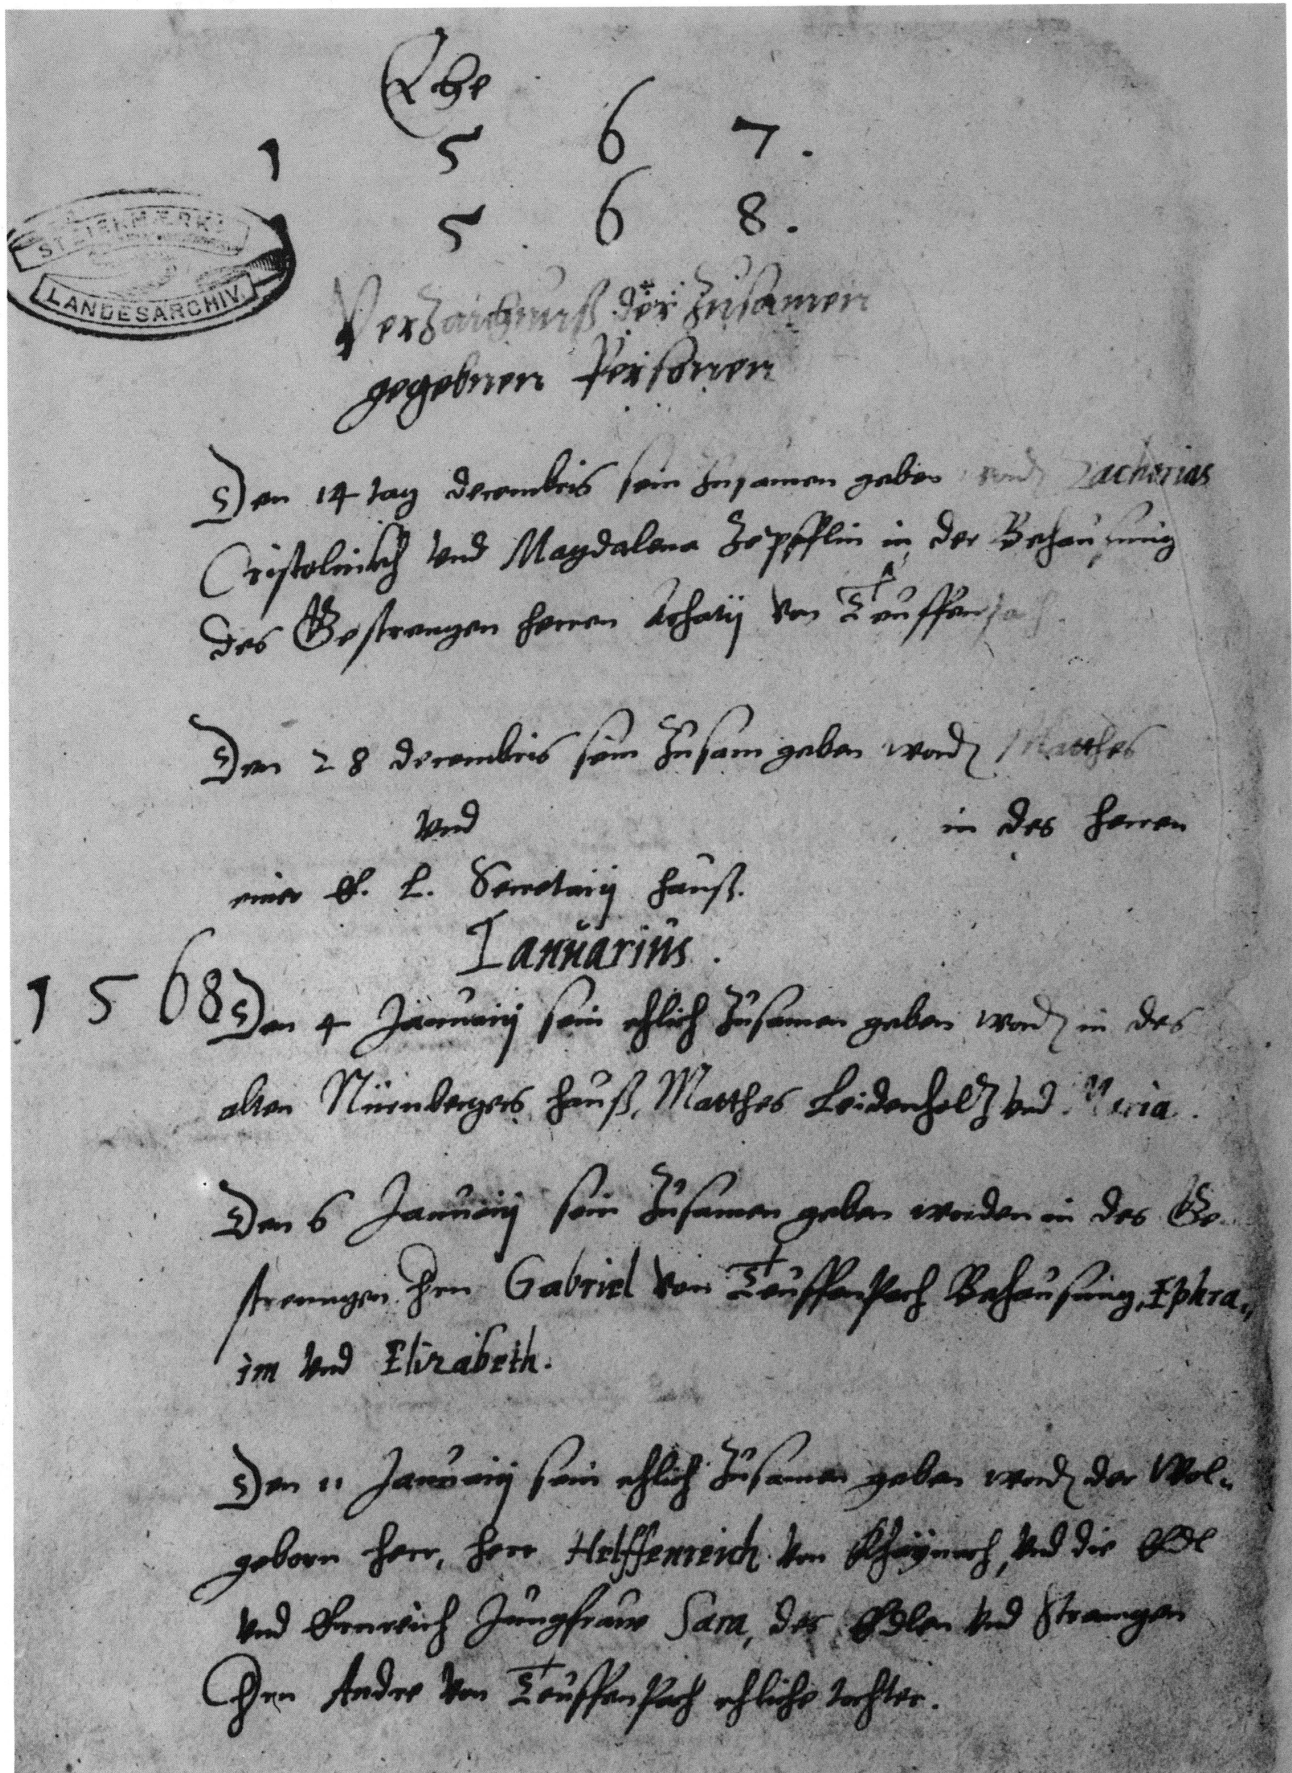 Ehe
1 5 6 7.
1 5 6 8.
STEIERMÆRK.
LANDESARCHIV.
Verzaichnuß der Zusamen
gegebnen Personen
Den 14 tag decembris sein Zusamen geben word Zacherias
Cristolnisch Vnd Magdalena Zepfflin in der Behausung
des Gestrengen herren Achatij Von Teuffenpach.
Den 28 decembris sein Zusam geben word Matthes
Vnd in des herren
einer E. L. Secretarij hauß.
Ianuarius.
1568 Den 4 Januarij sein ehlich Zusamen geben word in des
alten Nürnbergers hauß, Matthes Leidenholz Vnd Maria.
Den 6 Januarij sein Zusamen geben worden in des Ge-
strenngen Hrn Gabriel Von Teuffenpach Behausung, Ephra-
im Vnd Elizabeth.
Den 11 Januarij sein ehlich Zusamen geben word der Wol-
geborn herr, herr Helffenreich Von Khaynach, Vnd die Edl
Vnd Ernreich Jungfraw Sara, des Edlen Vnd Strenngen
Hrn Andre Von Teuffenpach ehliche tochter.